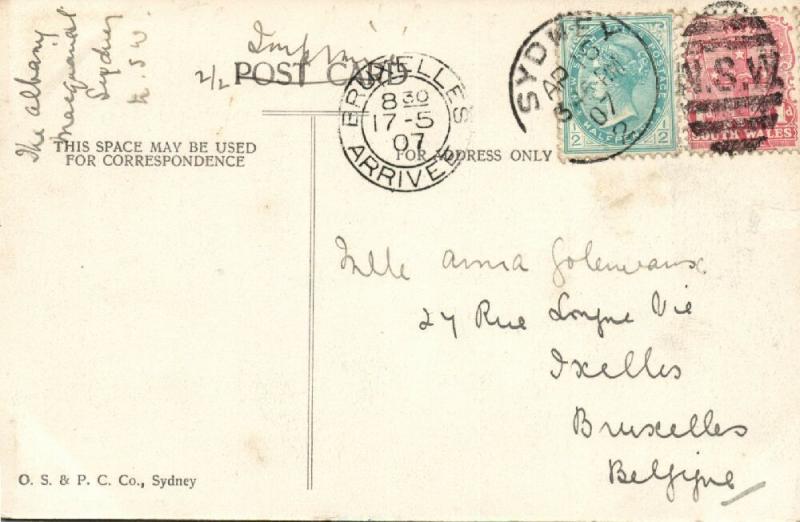 The Albany
Macquarie St
Sydney
N.S.W
Imprimé
2/2
POST CARD
THIS SPACE MAY BE USED
FOR CORRESPONDENCE
FOR ADDRESS ONLY
BRUXELLES
8 30
17-5
07
ARRIVEE
SYDNEY
AP 15
07
2
POSTAGE
HALF
1/2 1/2
N.S.W.
SOUTH WALES
Mlle Anna
27 Rue Longue Vie
Ixelles
Bruxelles
Belgique
O. S. & P. C. Co., Sydney